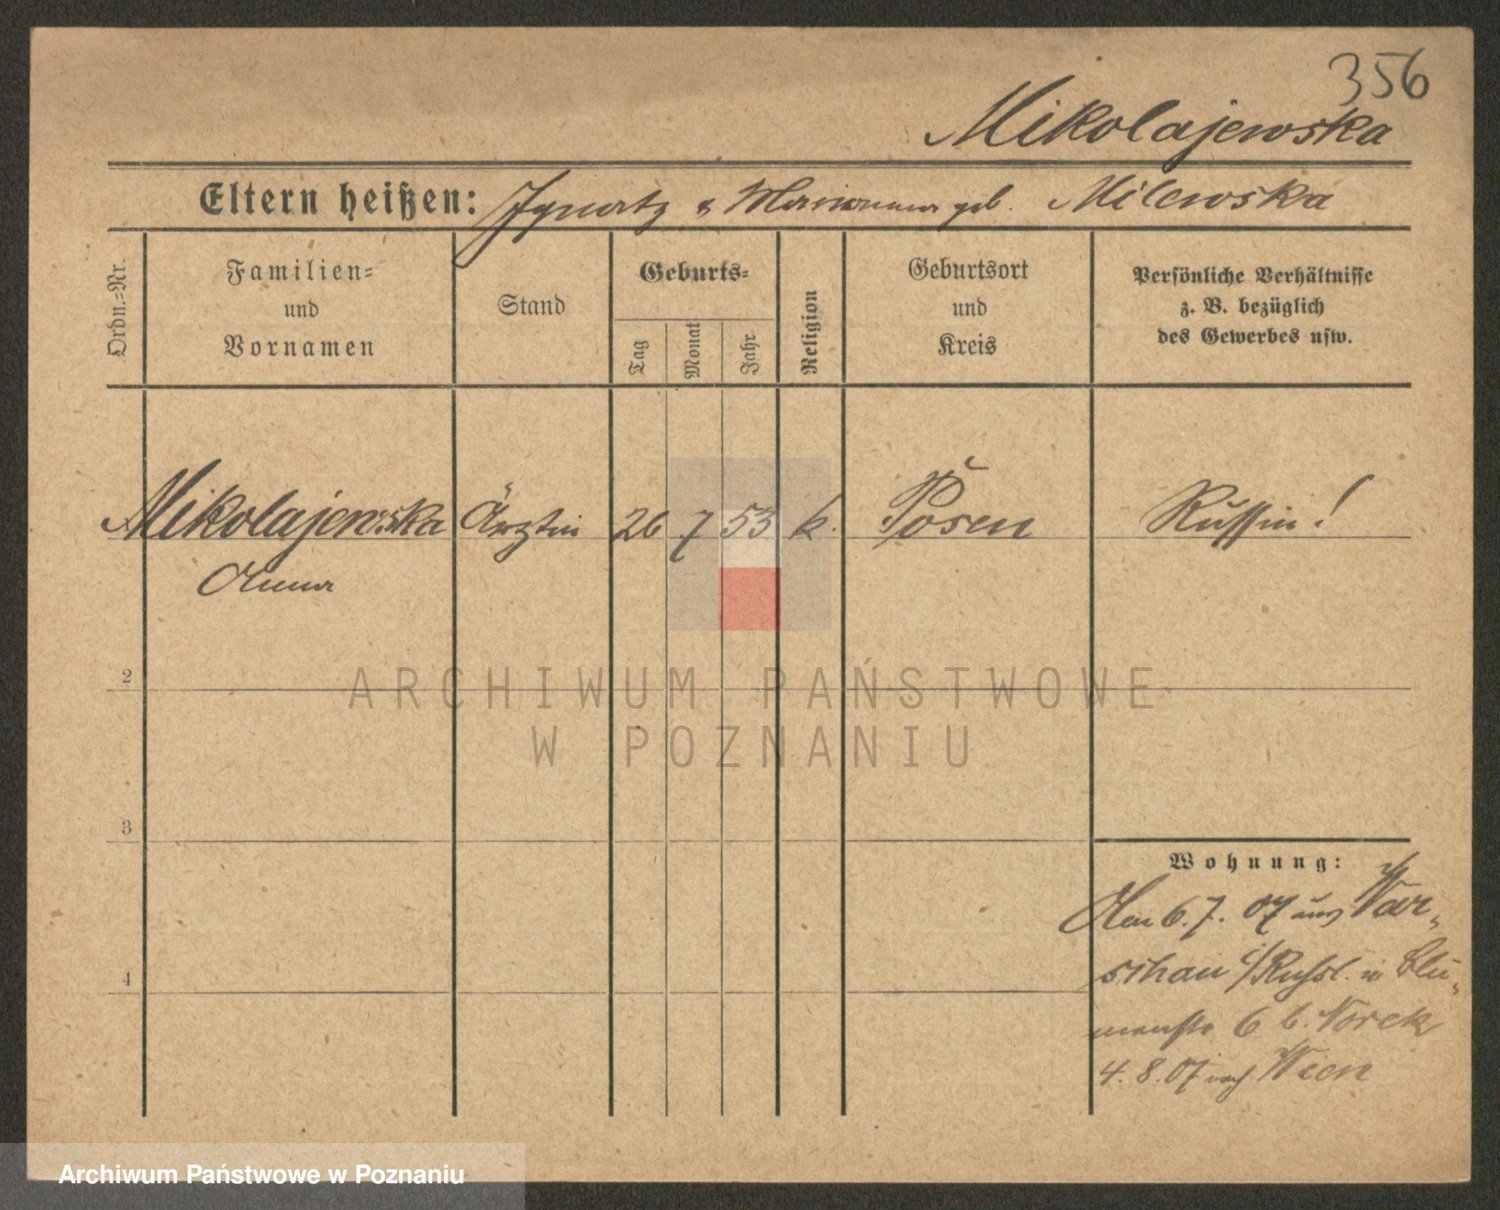 356
Mikolajewska
Eltern heißen: Ignatz & Marianna geb. Milewska
Ordn.-Nr.
Familien-
und
Vornamen
Stand
Geburts-
Tag
Monat
Jahr
Religion
Geburtsort
und
Kreis
Persönliche Verhältnisse
z. B. bezüglich
des Gewerbes usw.
Mikolajewska Ärztin 26 7 53 k. Posen Russin!
Anna
2
ARCHIWUM PAŃSTWOWE
W POZNANIU
3
Wohnung:
6.7.07 aus War-
4
schau i/Russl. in Blu-
menstr. 6 b. Norek
4.8.07 nach Wien
Archiwum Państwowe w Poznaniu